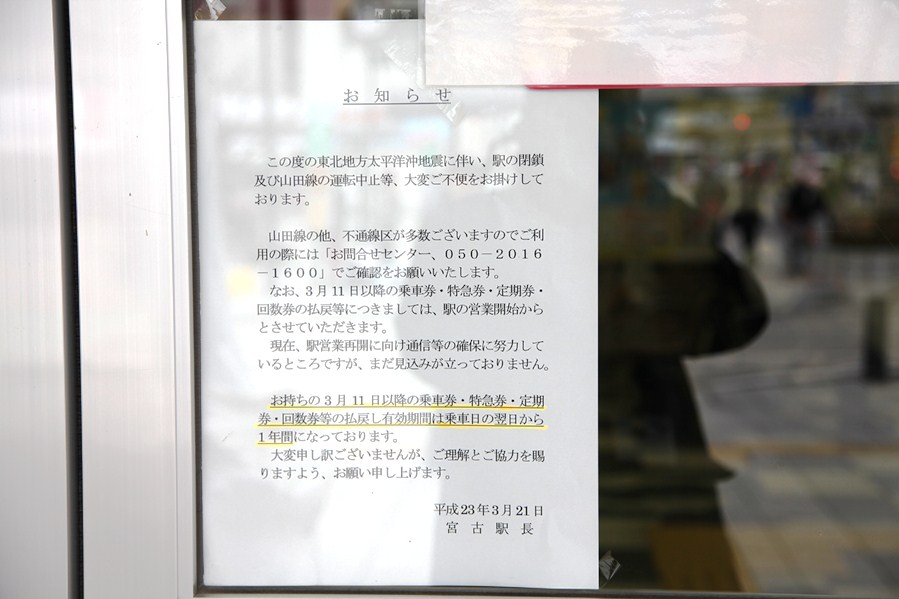 お知らせ
この度の東北地方太平洋沖地震に伴い、駅の閉鎖
及び山田線の運転中止等、大変ご不便をお掛けして
おります。
山田線の他、不通線区が多数ございますのでご利
用の際には「お問合せセンター、０５０－２０１６
－１６００」でご確認をお願いいたします。
なお、３月11日以降の乗車券・特急券・定期券・
回数券の払戻等につきましては、駅の営業開始から
とさせていただきます。
現在、駅営業再開に向け通信等の確保に努力して
いるところですが、まだ見込みが立っておりません。
お持ちの３月11日以降の乗車券・特急券・定期
券・回数券等の払戻し有効期間は乗車日の翌日から
１年間になっております。
大変申し訳ございませんが、ご理解とご協力を賜
りますよう、お願い申し上げます。
平成23年３月21日
宮古駅長